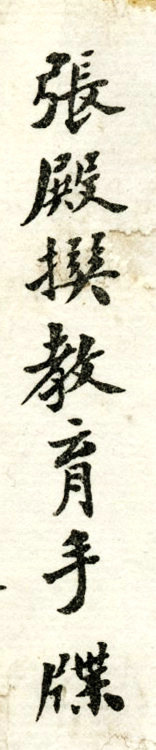 張殿撰教育手牒